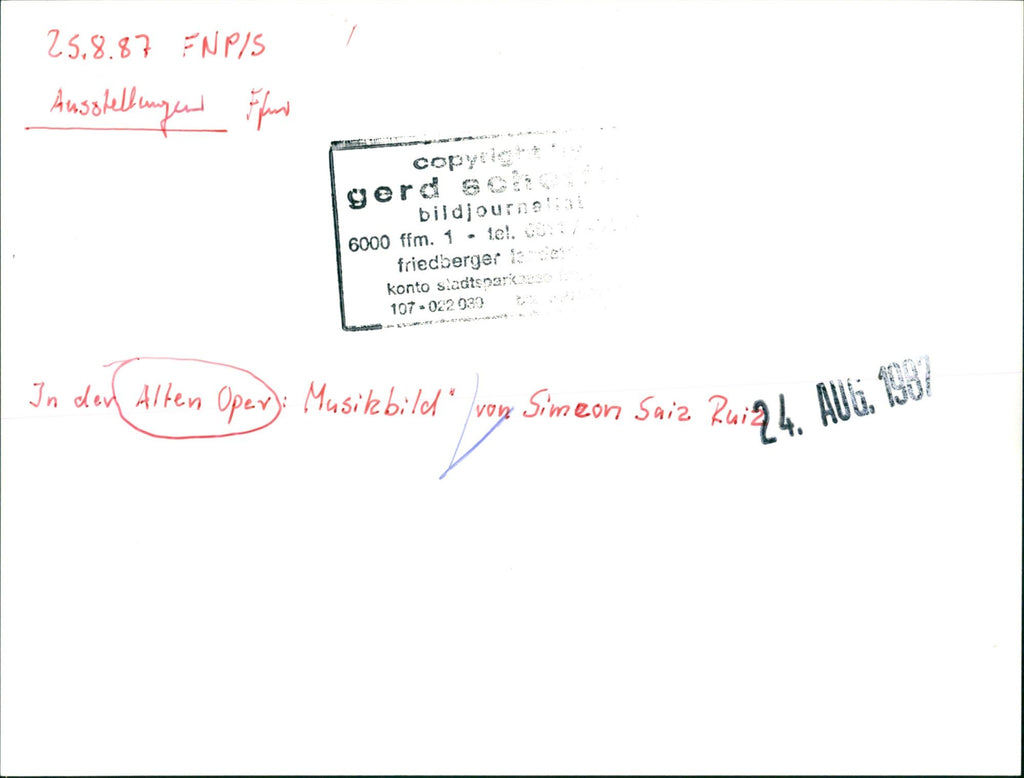 25.8.87 FNP/S
Ausstellungen Ffm
copyright by
gerd
bildjournalist
6000 ffm. 1 - tel.
friedberger
konto stadtsparkasse
107-022 039
In der Alten Oper: Musikbild" von Simeon Saiz Ruiz
24. AUG. 1987